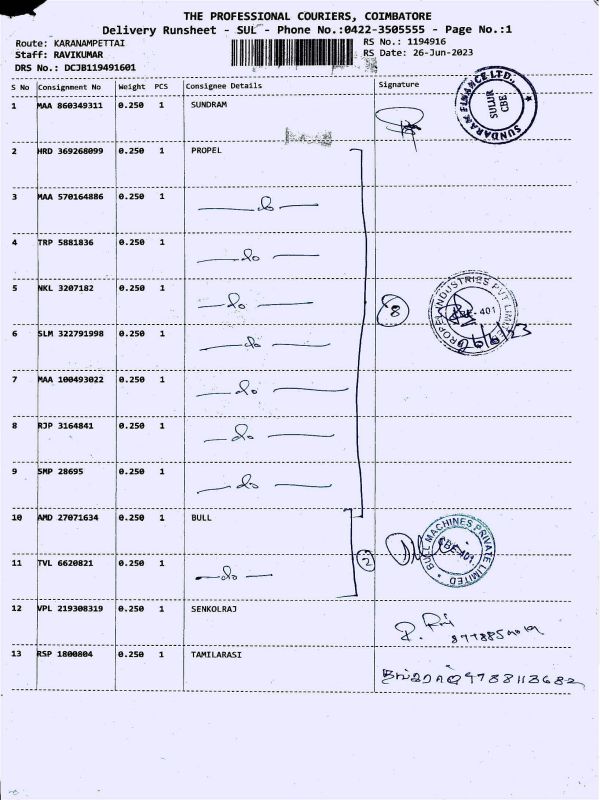 THE PROFESSIONAL COURIERS, COIMBATORE
Delivery Runsheet - SUL - Phone No.:0422-3505555 - Page No.:1
Route: KARANAMPETTAI
Staff: RAVIKUMAR
DRS No.: DCJB119491601
RS No.: 1194916
RS Date: 26-Jun-2023
S No Consignment No Weight PCS Consignee Details Signature
1 MAA 860349311 0.250 1 SUNDRAM
SUNDARAM FINANCE LTD.,
SULUR
CBE.
2 HRD 369268099 0.250 1 PROPEL
3 MAA 570164886 0.250 1 do
4 TRP 5881836 0.250 1 do
5 NKL 3207182 0.250 1 do
8
PROPEL INDUSTRIES PVT LIMITED
CBE-401
6 SLM 322791998 0.250 1 do
7 MAA 100493022 0.250 1 do
8 RJP 3164841 0.250 1 do
9 SMP 28695 0.250 1 do
10 AMD 27071634 0.250 1 BULL
BULL MACHINES PRIVATE LIMITED
CBE-401
11 TVL 6620821 0.250 1 do
2
12 VPL 219308319 0.250 1 SENKOLRAJ
13 RSP 1800804 0.250 1 TAMILARASI